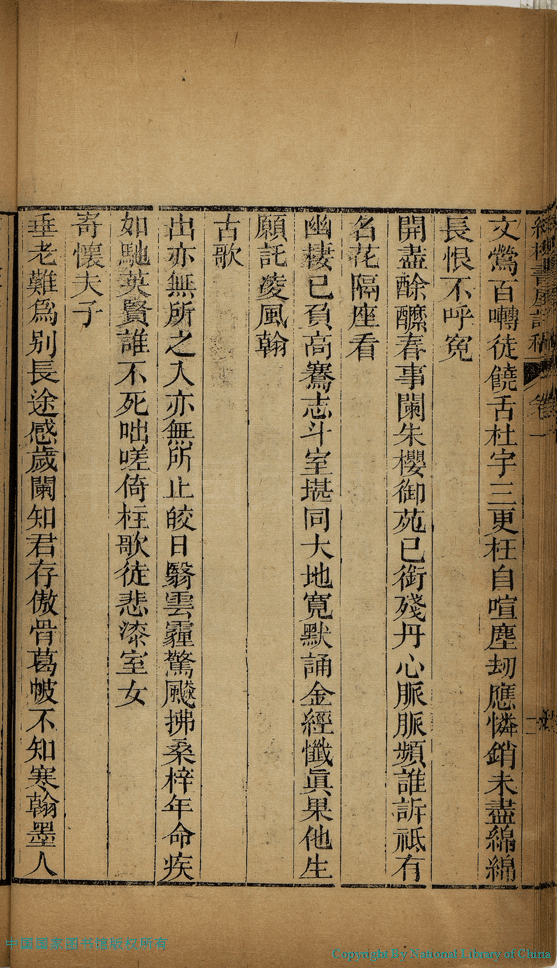 文鶯百囀徒饒舌杜宇三更枉自喧塵劫應憐銷未盡綿綿
長恨不呼寃
開盡酴醾春事闌朱櫻御苑已銜殘丹心脈脈頻誰訴祗有
名花隔座看
幽棲已負高騫志斗室堪同大地寛默誦金經懺眞果他生
願託凌風翰
古歌
出亦無所之入亦無所止皎日翳雲霾驚飇拂桑梓年命疾
如馳英賢誰不死咄嗟倚柱歌徒悲漆室女
寄懷夫子
垂老難爲别長途感歲闌知君存傲骨葛帔不知寒翰墨人
中國國家圖書館版权所有
Copyright by National Library of China